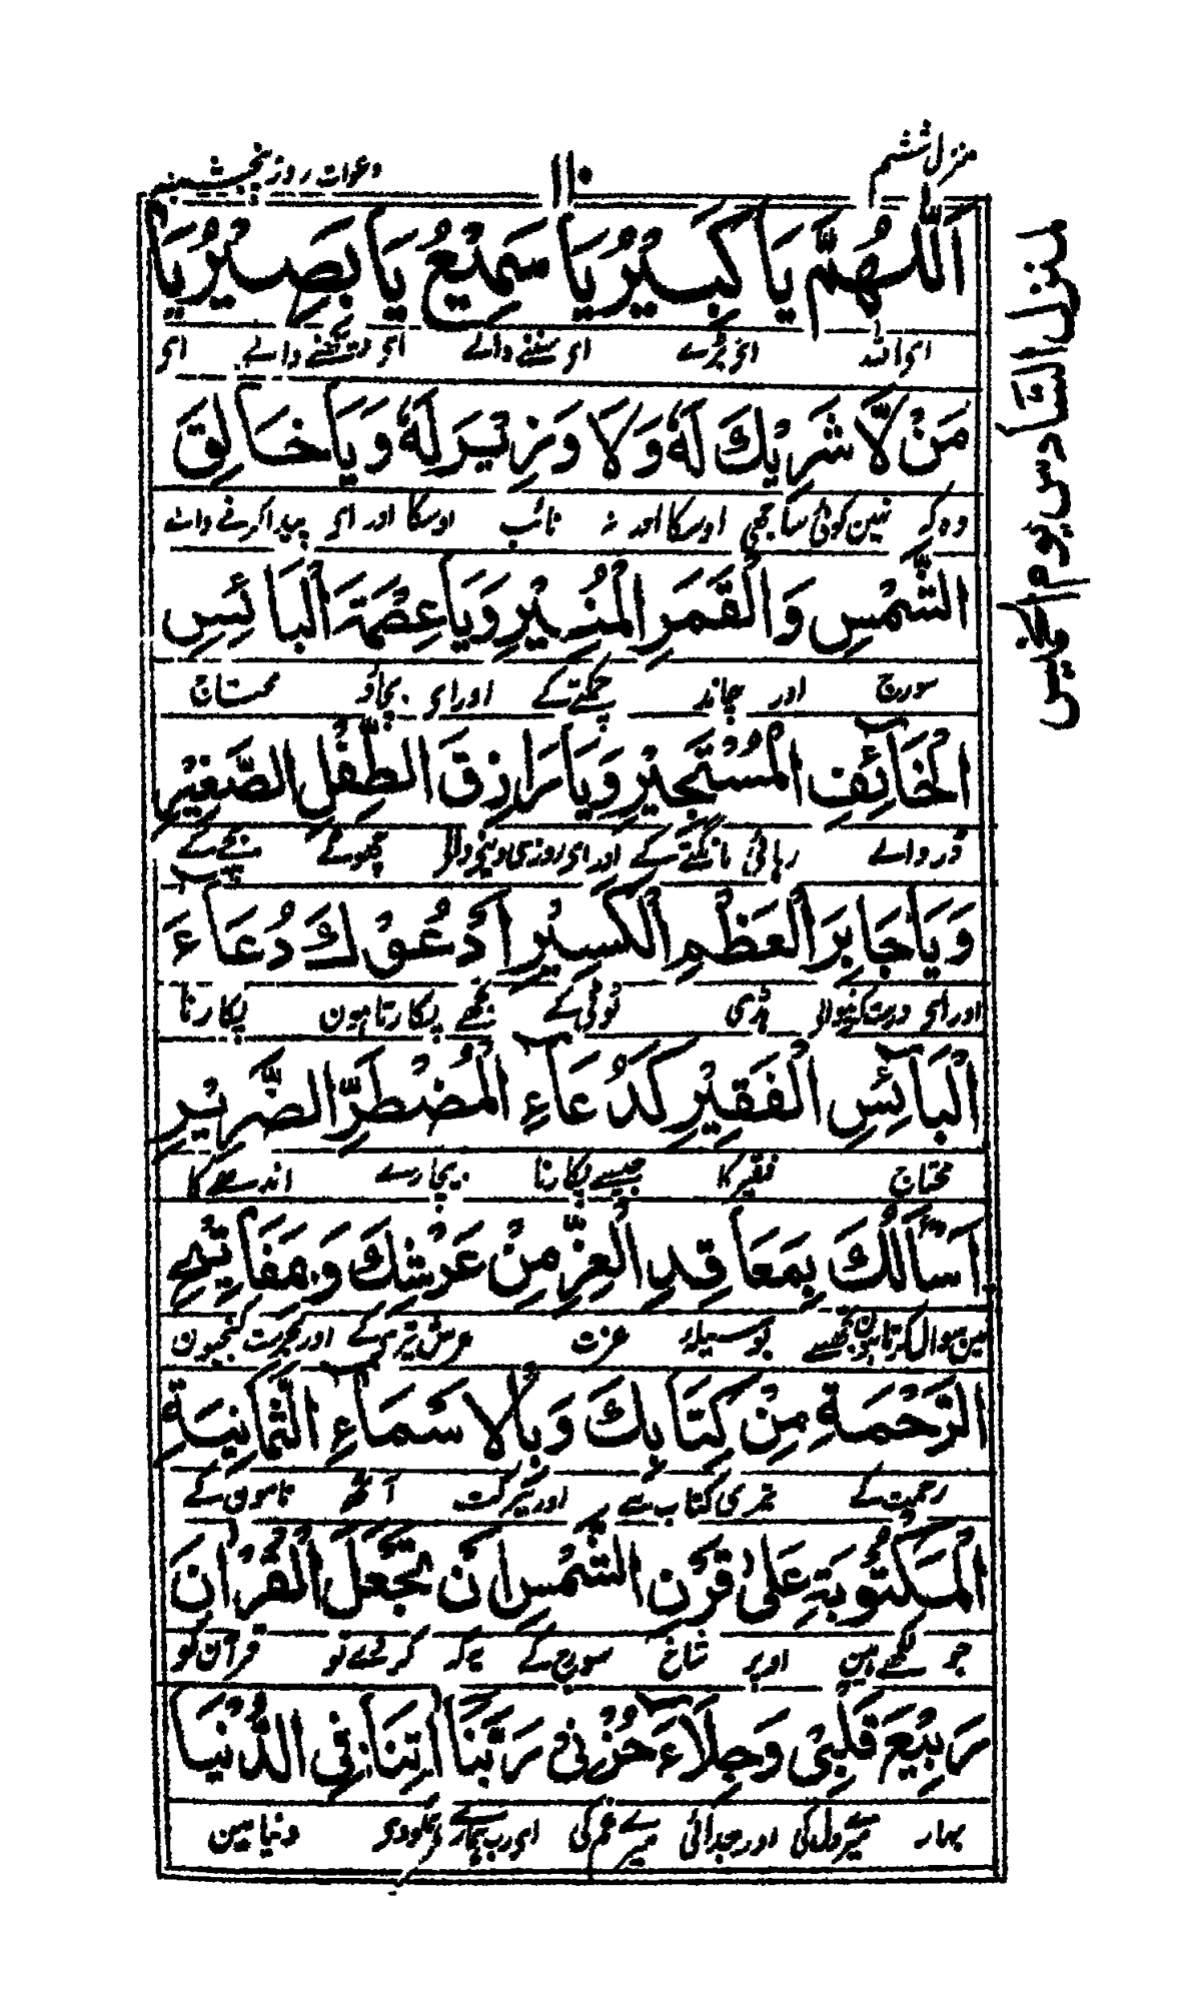 منزل ششم
۱۱۰
دعوات روز پنجشنبه
اَللّٰهُمَّ يَا كَبِيْرُ يَا سَمِيْعُ يَا بَصِيْرُ يَا
ای اللہ ای بڑے ای سننے والے ای دیکھنے والے ای
مَنْ لَّا شَرِيْكَ لَهٗ وَلَا وَزِيْرَ لَهٗ وَيَا خَالِقَ
وہ کہ نہین کوئی ساجھی اوسکا اور نہ نائب اوسکا اور ای پیدا کرنے والے
الشَّمْسِ وَالْقَمَرِ الْمُنِيْرِ وَيَا عِصْمَةَ الْبَائِسِ
سورج اور چاند چمکتے کے اور ای بچاؤ محتاج
الْخَآئِفِ الْمُسْتَجِيْرِ وَيَا رَازِقَ الطِّفْلِ الصَّغِيْرِ
ڈر والے رہائی مانگتے کے اور ای روزی دینے والے چھوٹے بچے کے
وَيَا جَابِرَ الْعَظْمِ الْكَسِيْرِ اَدْعُوْكَ دُعَآءَ
اور ای درست کرنیوالے ہڈی ٹوٹی کے تجھے پکارتا ہون پکارنا
الْبَآئِسِ الْفَقِيْرِ كَدُعَآءِ الْمُضْطَرِّ الضَّرِيْرِ
محتاج فقیر کا جیسے پکارنا بیچارے اندھے کا
اَسْاَلُكَ بِمَعَاقِدِ الْعِزِّ مِنْ عَرْشِكَ وَبِمَفَاتِيْحِ
مین سوال کرتا ہون تجھسے بوسیلہ عزت عرش تیری کے اور بحرمت کنجیون
الرَّحْمَةِ مِنْ كِتَابِكَ وَبِالْاَسْمَآءِ الثَّمَانِيَةِ
رحمت کے تیری کتاب سے اور ببرکت آٹھ نامون کے
الْمَكْتُوْبَةِ عَلٰى قَرْنِ الشَّمْسِ اَنْ تَجْعَلَ الْقُرْاٰنَ
جو لکھے ہین اوپر شاخ سورج کے یہ کہ کردے تو قرآن کو
رَبِيْعَ قَلْبِيْ وَجِلَآءَ حُزْنِيْ رَبَّنَا اٰتِنَا فِي الدُّنْيَا
بہار میرے دل کی اور جدائی میرے غم کی ای رب ہمارے ہمکو دے دنیا مین
منزل السادس يوم الخميس